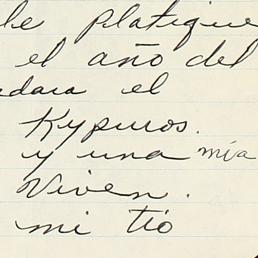 le platique
el año del
dara el
Kypuros.
y una mía
viven.
mi tío